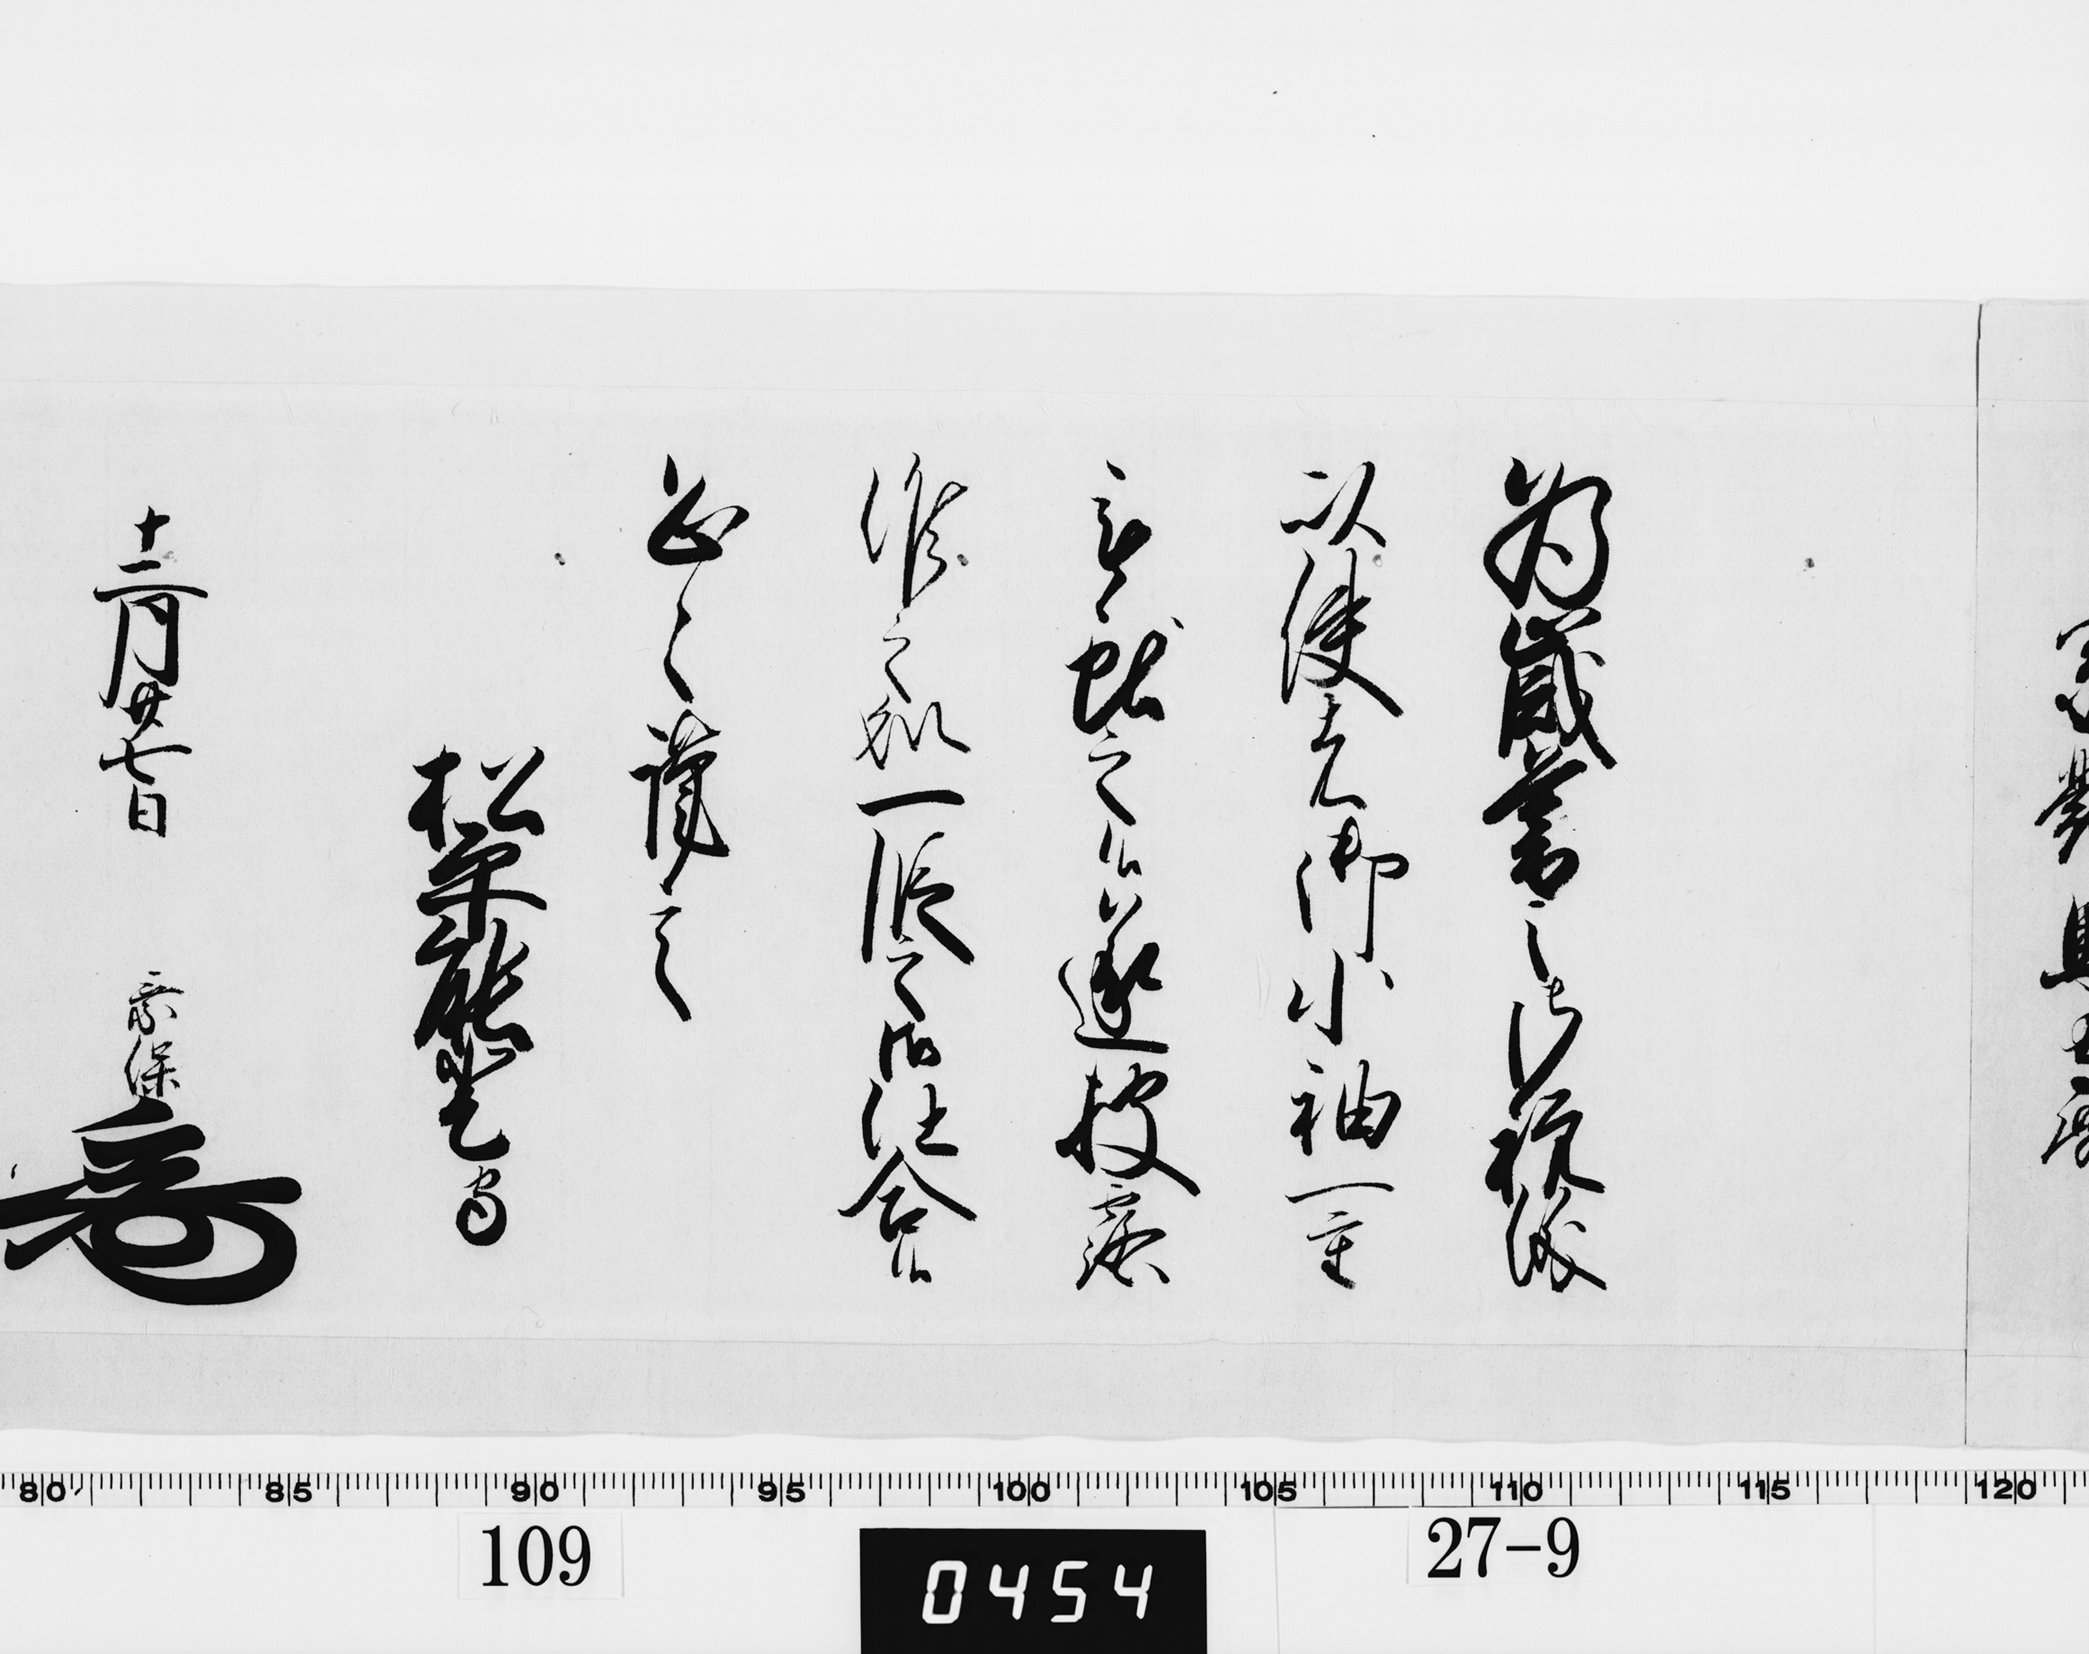 為歳暮之御祝儀
以使者御小袖一重
被献之候遂披露
候之処一段之御仕合候
恐々謹言
松平能登守
十二月廿七日
乗保
80
85
90
95
100
105
110
115
120
109
0454
27-9